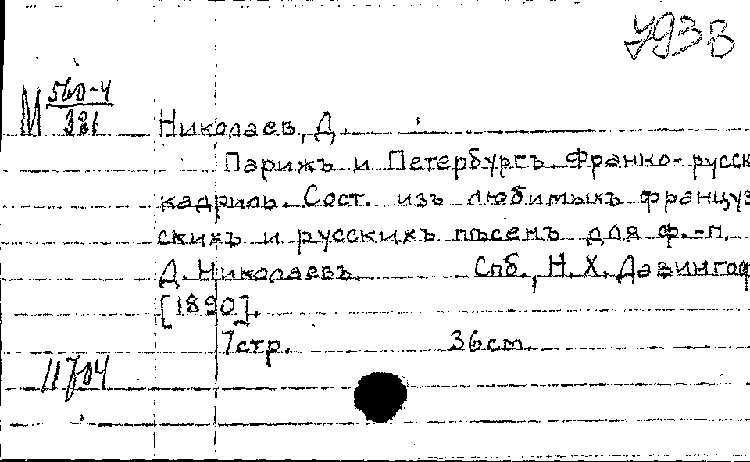 У93 В
М 560-4
381
Николаев, Д.
Парижъ и Петербургъ. Франко-русск
кадриль. Сост. изъ любимыхъ француз
скихъ и русскихъ пѣсенъ для ф.-п.
Д. Николаевъ. Спб., Н. Х. Давингоф
[1890].
7 стр. 36 см.
11704